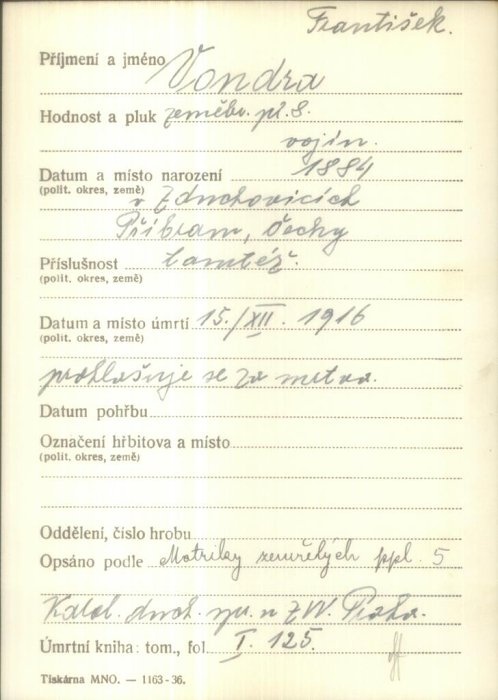 František.
Příjmení a jméno Vondra
Hodnost a pluk zeměbr. pl. 8.
vojín.
Datum a místo narození 1884
(polit. okres, země)
v Zduchovicích
Příbram, Čechy
Příslušnost tamtéž.
(polit. okres, země)
Datum a místo úmrtí 15./XII. 1916
(polit. okres, země)
prohlašuje se za mrtva.
Datum pohřbu
Označení hřbitova a místo
(polit. okres, země)
Oddělení, číslo hrobu
Opsáno podle Matriky zemřelých ppl. 5
Katol. duch. spr. n ZVV. Praha.
Úmrtní kniha: tom., fol. I. 125.
Tiskárna MNO. — 1163-36.